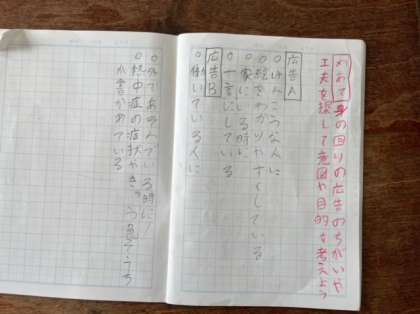 めあて身の回りの広告のちがいや
工夫を探して意図や目的を考えよう
広告A
○けんこうな人に
○絵をわかりやすくしている
○家にいる時に
○一言にしている
広告B
○働いている人に
○外であそんでいる時に！
○熱中症の症状や
が書かれている